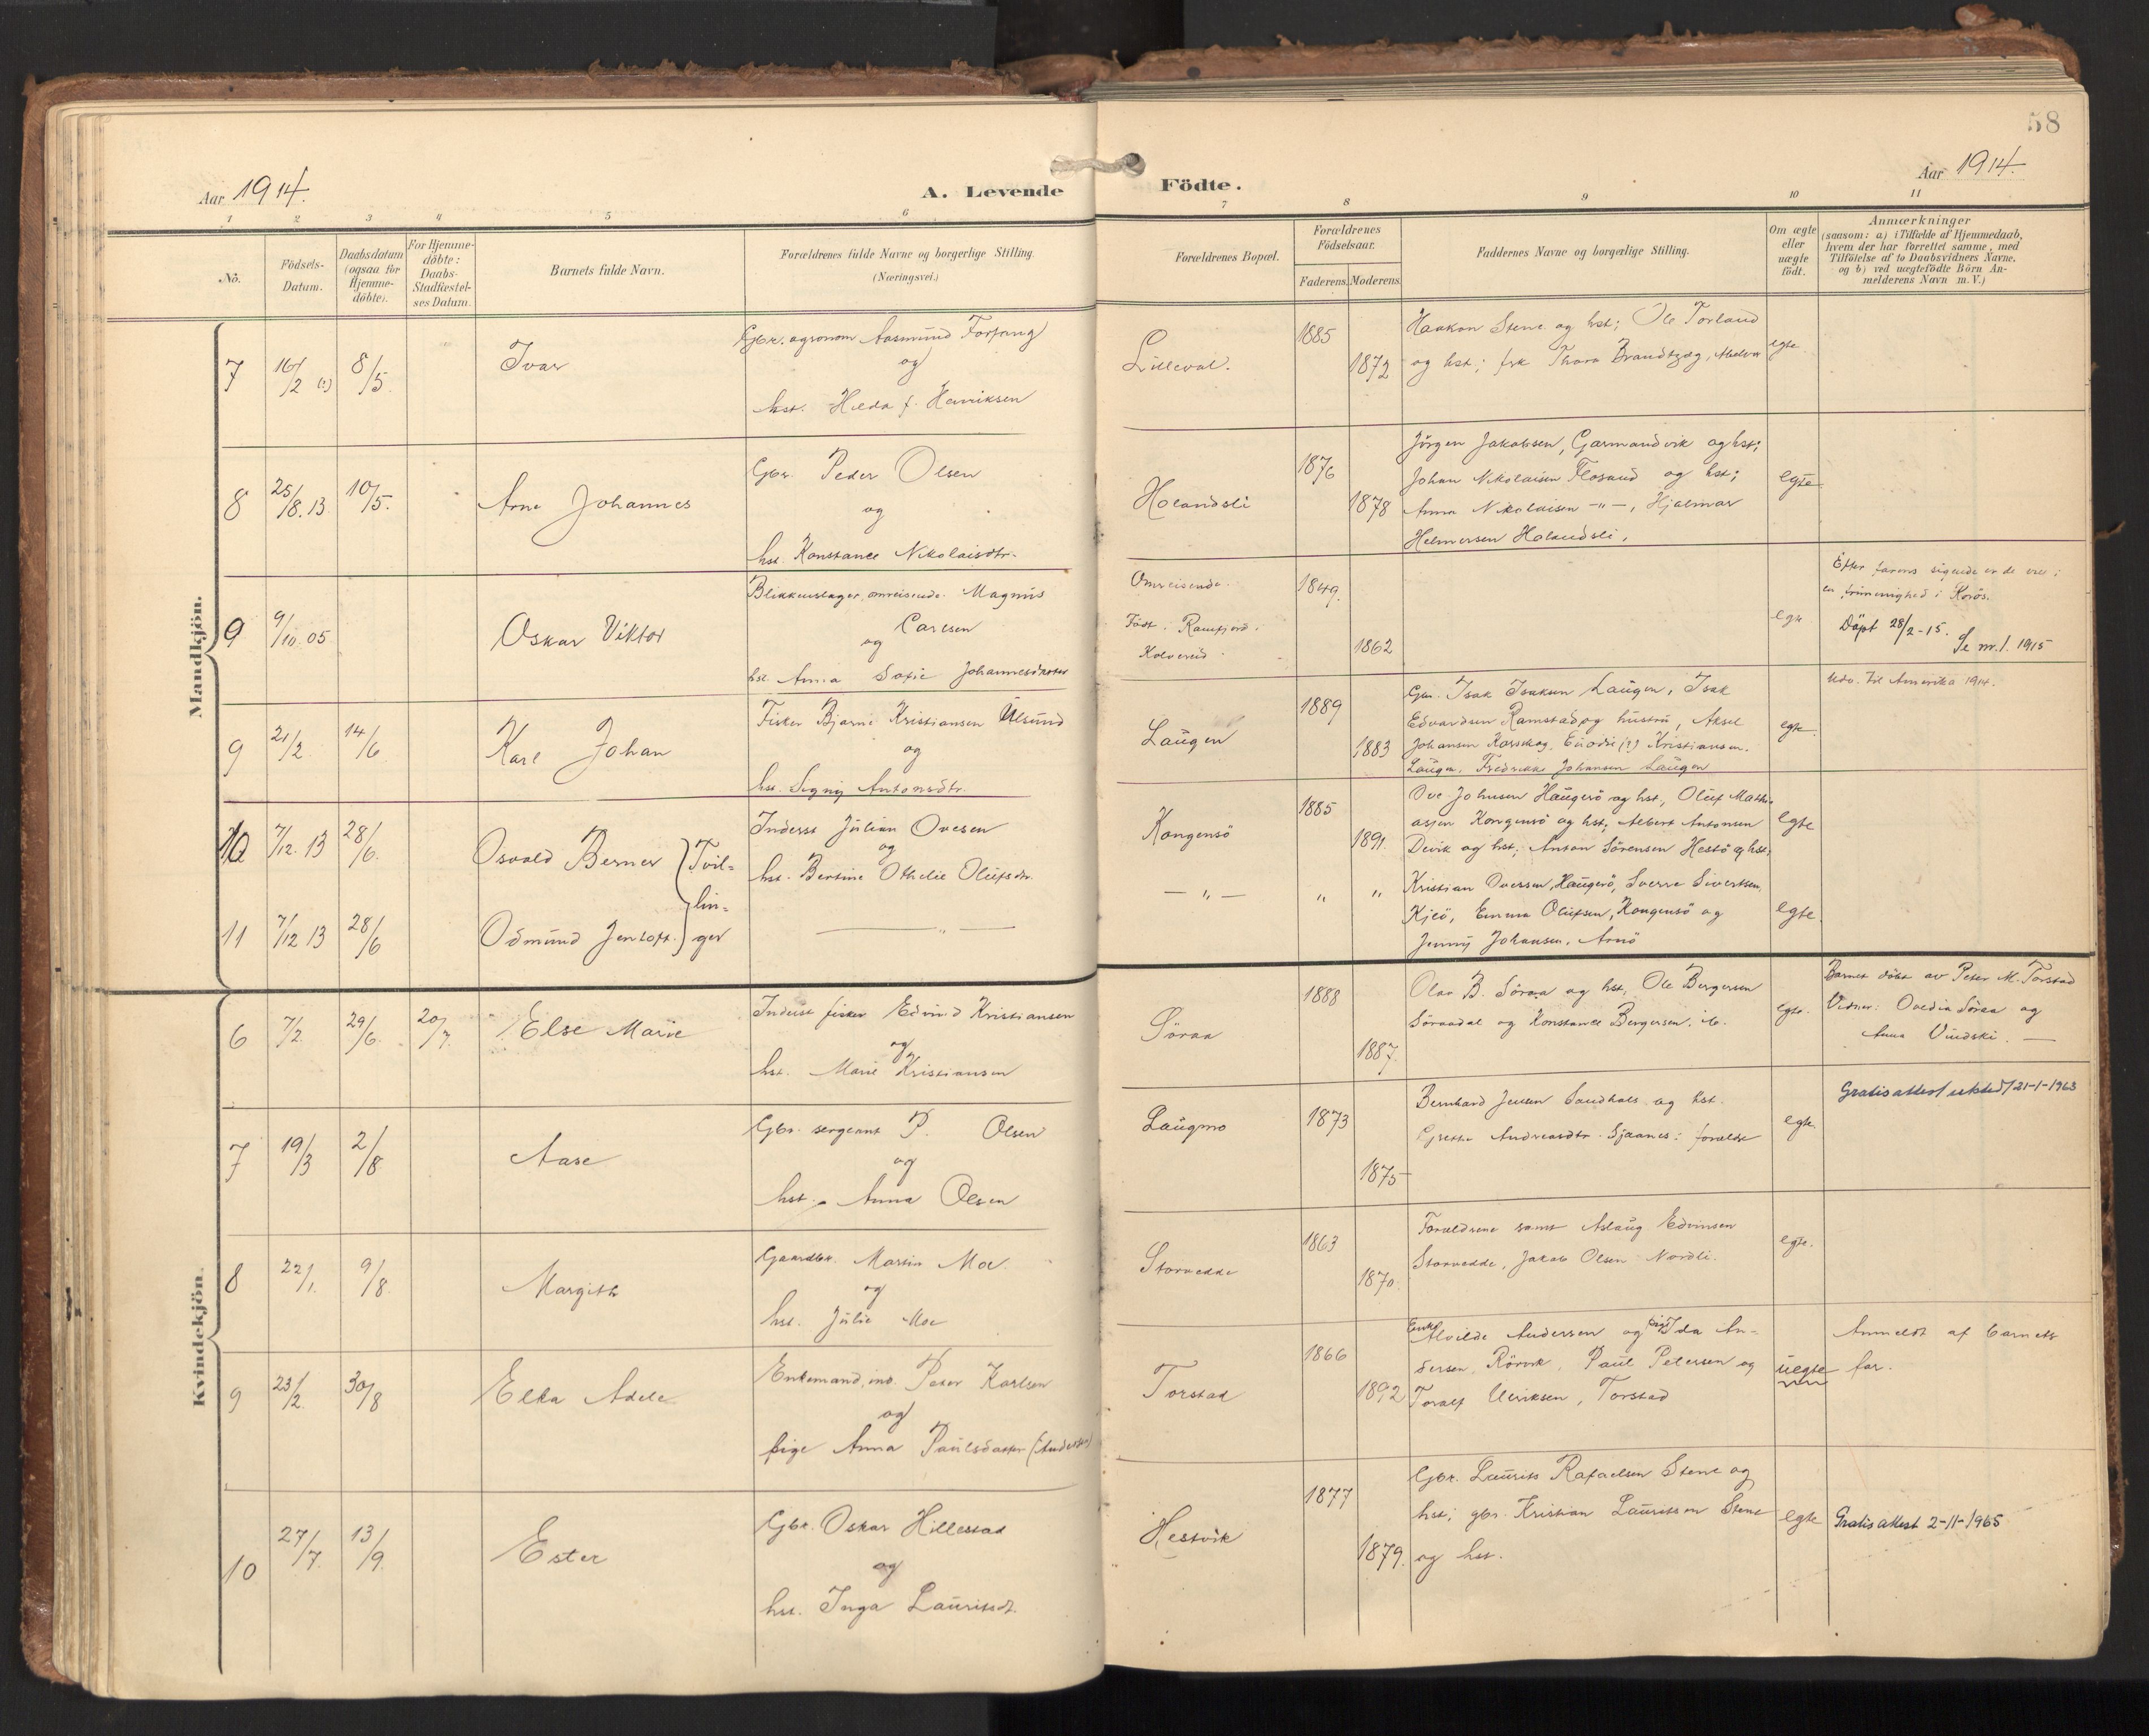 58
Aar 1914.
A. Levende
Födte.
Aar 1914.
1 2 3 4 5 6 7 8 9 10 11
No.
Födsels-
Datum.
Daabsdatum
(ogsaa for
Hjemme-
döbte).
For Hjemme-
döbte:
Daabs-
Stadfæstel-
ses Datum.
Barnets fulde Navn.
Forældrenes fulde Navne og borgerlige Stilling.
(Næringsvei.)
Forældrenes Bopæl.
Forældrenes
Födselsaar.
Faderens. Moderens.
Faddernes Navne og borgerlige Stilling.
Om ægte
eller
uægte
födt.
Anmærkninger
(saasom: a) i Tilfælde af Hjemmedaab,
hvem der har forrettet samme, med
Tilföielse af to Daabsvidners Navne,
og b) ved uægtefödte Börn An-
melderens Navn m. V.)
Mandkjön.
7 16/2 (?) 8/5. Ivar
Gbr. agronom Aasmund Forfang
og
hst. Hilda f. Henriksen
Lilleval. 1885 1872
Haakon Stene og hst; Ole Torland
og hst; frk Thora Brandtzæg,
egte
8 25/8.13 10/5. Arne Johannes
Gbr. Peder Olsen
og
hst. Konstance Nikolaisdtr.
Holandsli 1876 1878
Jörgen Jakobsen, Garmandvik og hst;
Johan Nikolaisen Flosand og hst;
Anna Nikolaisen -"-, Hjalmar
Helmersen Holandsli,
egte
9 9/10.05 Oskar Viktor
Blikkenslager, omreisende. Magnus
Carlsen
og
hst. Anna Sofie Johannesdatter
Omreisende.
Födt. Ramfjord.
Kolvereid
1849. 1862
egte
Efter farens sigende er de viet i
en frimenighed i Röros.
Döpt 28/2-15. Se nr. 1. 1915
9 21/2. 14/6 Karl Johan
Fisker Bjarne Kristiansen Ulsund
og
hst. Signy Antonsdtr.
Laugen 1889 1883
Gbr. Isak Isaksen Laugen, Isak
Edvardsen Ramstad og hustru, Aksel
Johansen Horsskog, (?) Kristiansen.
Laugen, Fredrikke Johansen Laugen
egte.
Udv. til Amerika 1914.
10 7/12.13 28/6. Osvald Berner } Tvil-
lin-
Inderst Julian Ovesen
og
hst. Bertine Othelie Olufsdr.
Kongensö 1885 1891.
Ove Johnsen Haugerö og hst., Oluf Mathi-
asen Kongensö og hst; Albert Antonsen
Devik og hst; Anton Sörensen Hestö og hst;
egte
11 7/12 13 28/6 Odmund Jentoft. } ger
— " —
— " — " "
Kristian Ovesen, Haugerö, Sverre Sivertsen,
Kjeö, Emma Olufsen, Kongensö og
Jenny Johansen, Arnö
egte.
Kvindekjön.
6 7/2. 29/6. 20/7. Else Marie
Inderst fisker Edvind Kristiansen
og
hst. Marie Kristiansen
Söraa 1888 1887.
Olav B. Söraa og hst, Ole Bergersen
Söraadal og Konstance Bergersen, ib.
egte.
Barnet döbt av Peter M. Torstad
Vidner: Ovedia Söraa og
Anna Vindski. —
7 19/3 2/8 Aase
Gbr. sergeant P. Olsen
og
hst. Anna Olsen
Laugmo 1873 1875
Bernhard Jensen Sandhals og hst.
Grethe Andreasdtr. Sjaanes: foreldre
egte.
Gratis attest utsted 21-1-1963
8 22/1. 9/8. Margith
Gaardbr. Martin Moe.
og
hst. Julie Moe
Storvedde 1863 1870.
Forældrene samt Aslaug Edvinsen
Storvedde, Jakob Olsen Nordli.
egte.
9 23/2. 30/8 Elka Adele
Enkemand, ind. Peter Karlsen
og
pige Anna Paulsdatter (Andersen)
Torstad 1866 1892
Enke Alvilde Andersen og pige Ida An-
dersen, Rörvik, Paul Petersen og
Toralf Ulriksen, Torstad
uegte
Anmeldt af barnets
far.
10 27/7. 13/9. Ester
Gbr. Oskar Hillestad
og
hst. Inga Lauritsdt.
Hestvik 1877 1879.
Gbr. Laurits Rafaelsen Stene og
hst; gbr. Kristian Lauritsen Stene
og hst.
egte
Gratis attest 2-11-1965